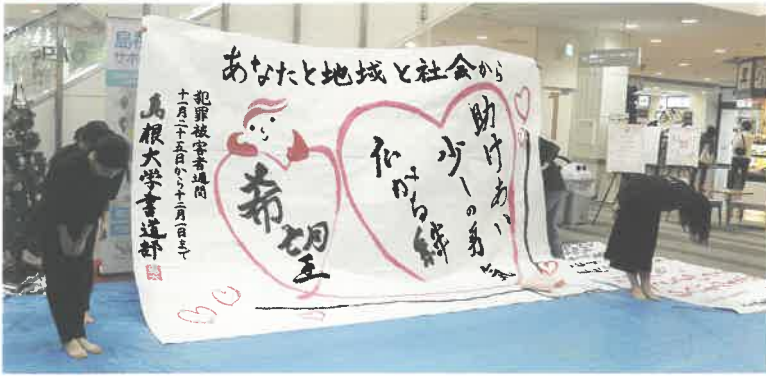 あなたと地域と社会から
助けあい
少しの勇気
がる
希望
犯罪被害者週間
十一月二十五日から十二月一日まで
島根大学書道部
島
サポ